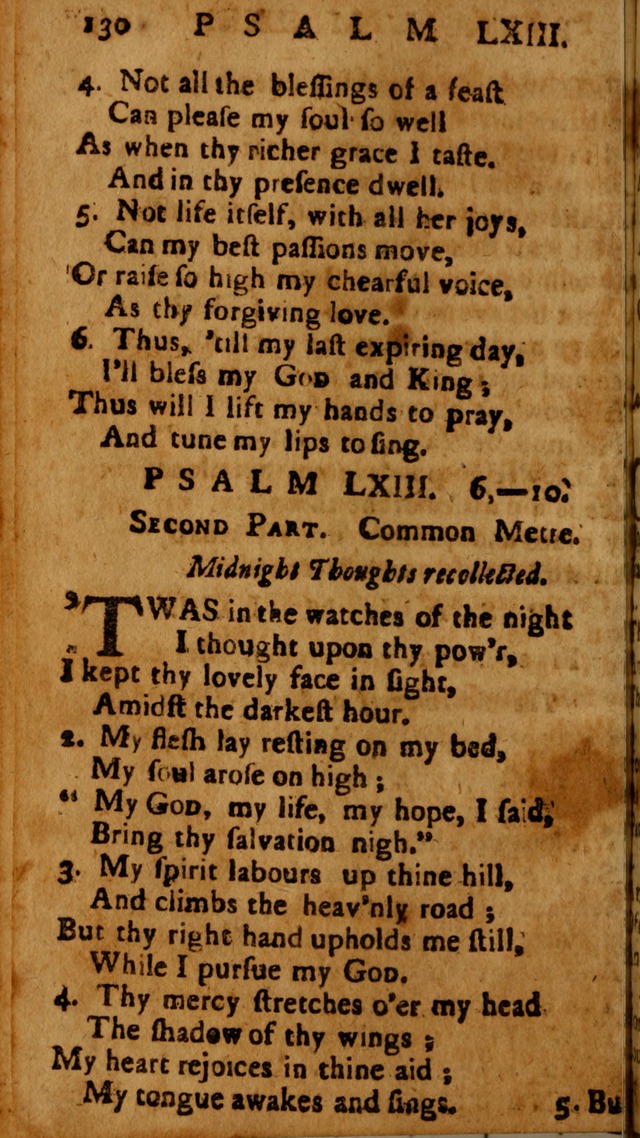 130 P S A L M LXIII.
4. Not all the bleſſings of a feaſt
Can pleaſe my ſoul ſo well
As when thy richer grace I taſte.
And in thy preſence dwell.
5. Not life itſelf, with all her joys,
Can my beſt paſſions move,
Or raiſe ſo high my chearful voice,
As thy forgiving love.
6. Thus, 'till my laſt expiring day,
I'll bleſs my GOD and King;
Thus will I lift my hands to pray,
And tune my lips to ſing.
P S A L M LXIII. 6,—10.
SECOND PART. Common Metre.
Midnight Thoughts recollected.
'TWAS in the watches of the night
I thought upon thy pow'r,
I kept thy lovely face in ſight,
Amidſt the darkeſt hour.
2. My fleſh lay reſting on my bed,
My ſoul aroſe on high;
“ My GOD, my life, my hope, I ſaid,
Bring thy ſalvation nigh.”
3. My ſpirit labours up thine hill,
And climbs the heav'nly road;
But thy right hand upholds me ſtill,
While I purſue my GOD.
4. Thy mercy ſtretches o'er my head
The ſhadow of thy wings;
My heart rejoices in thine aid;
My tongue awakes and ſings.
5. Bu